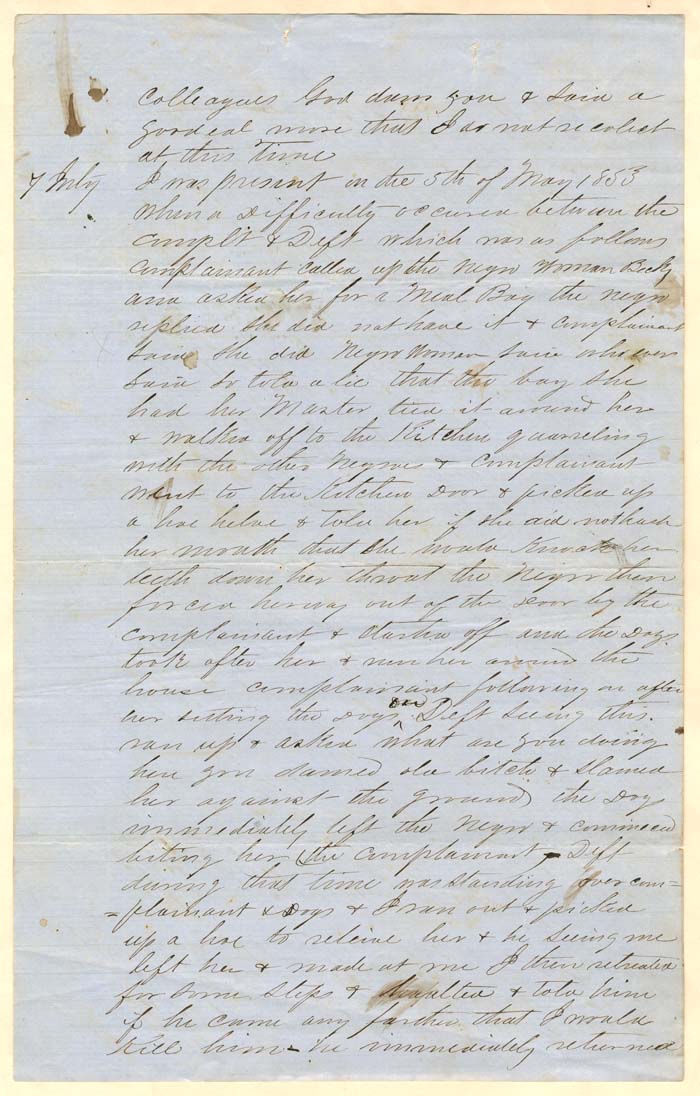 Colleagues God damn you & said a
goodeal more that I do not recolect
at this time
7 July I was present on the 5th of May 1853
when a difficulty occured between the
complt & Deft which was as follows
Complainant called up the Negro Woman Becky
and asked her for a Meal Bag the negro
replied she did not have it & complainant
said she did Negro Woman said who ever
said so told a lie that the bag she
had her Master tied it around her
& walked off to the Kitchen quarreling
with the other Negroes & complainant
went to the Kitchen Door & picked up
a hoe helve & told her if she did not hush
her mouth that she would Knock her
teeth down her throat the Negro then
forced her way out of the door by the
complainant & started off and the Dogs
took after her & run her around the
house complainant following on after
her setting the dogs on Deft seeing this
ran up & asked what are you doing
here you damned old bitch & slamed
her against the ground the Dogs
immediately left the Negro & commenced
biting her (the complainant) Deft
during that time was standing over com=
=plainant & Dogs & I ran out & picked
up a hoe to releive her & he seeing me
left her & made at me I then retreated
for some steps & haulted & told him
if he came any farther that I would
Kill him - he immediately returned